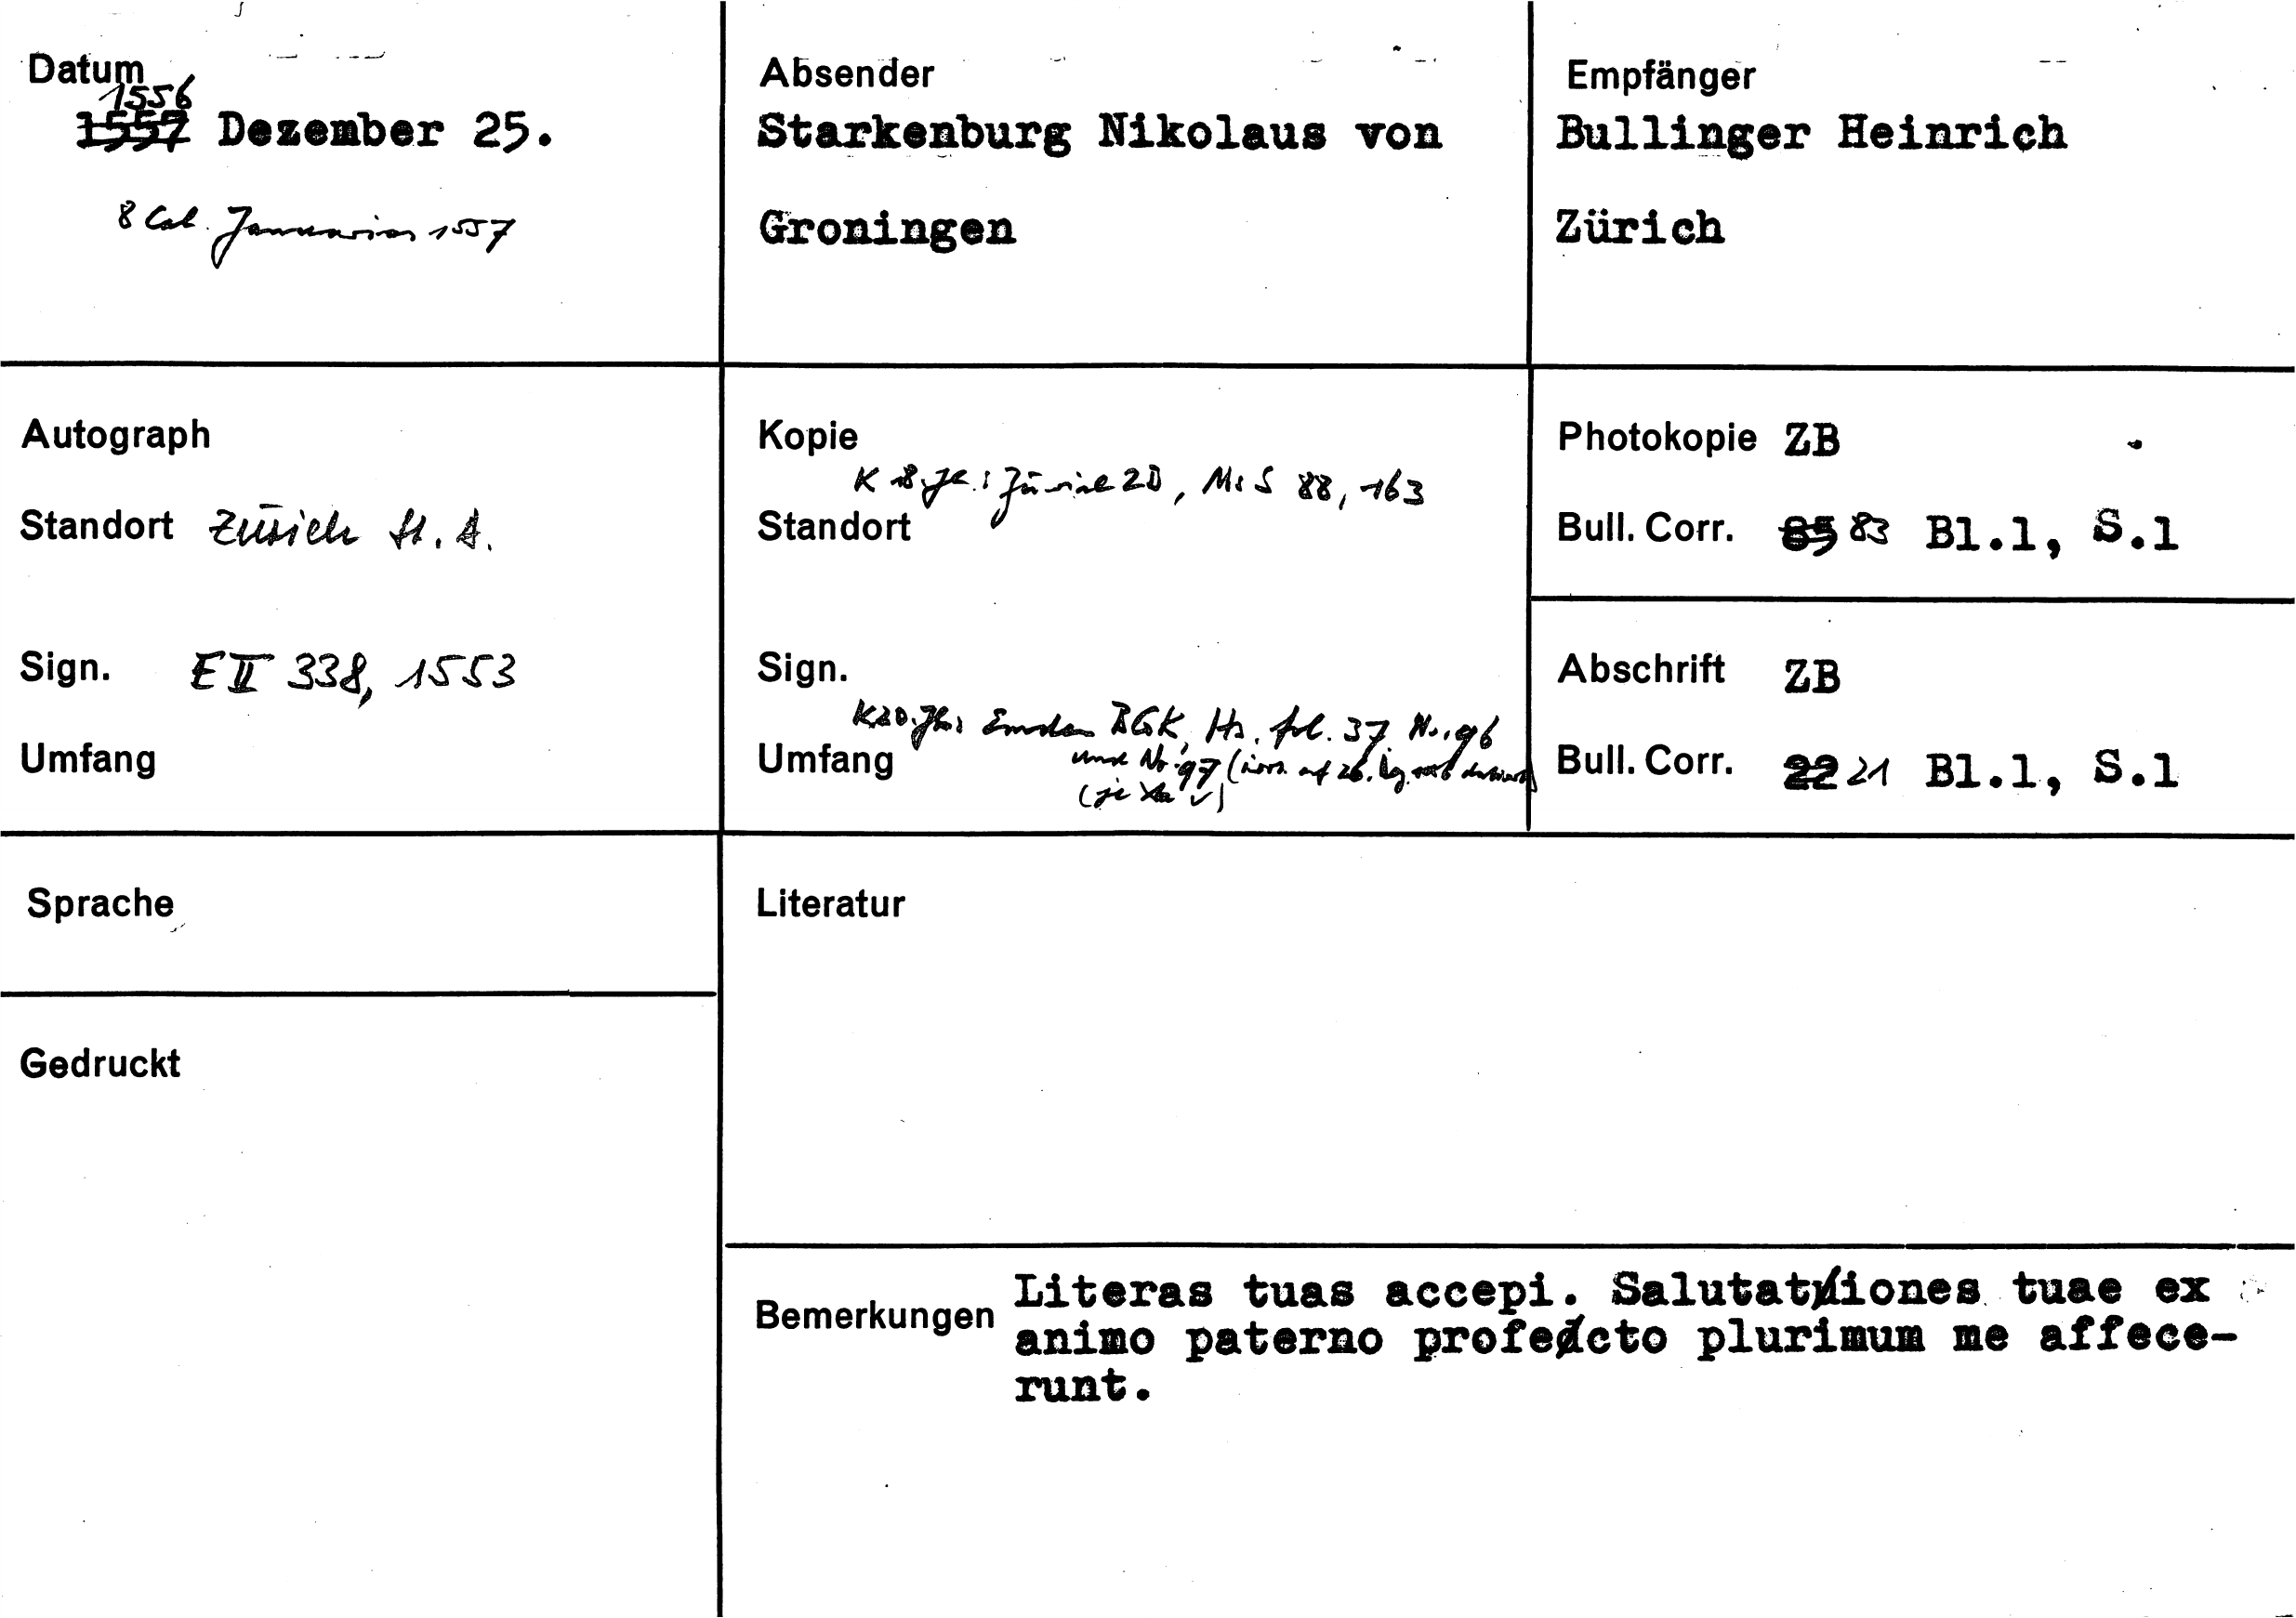 Datum
1556
1557 Dezember 25.
8 Cal. Januarias 1557
Absender
Starkenburg Nikolaus von
Groningen
Empfänger
Bullinger Heinrich
Zürich
Autograph
Standort Zürich St. A.
Sign. E II 338, 1553
Umfang
Kopie
K 18. Jh.: Zürich ZB, Ms S 88, 163
Standort
Sign.
K 20. Jh.: Emden BGK, Hs. fol. 37 Nr. 96
Umfang
und Nr. 97 (irrt. auf 26.
Photokopie ZB
Bull. Corr. 85 83 Bl.1, S.1
Abschrift ZB
Bull. Corr. 22 21 Bl.1, S.1
Sprache
Literatur
Gedruckt
Bemerkungen
Literas tuas accepi. Salutationes tuae ex
animo paterno profecto plurimum me affece-
runt.